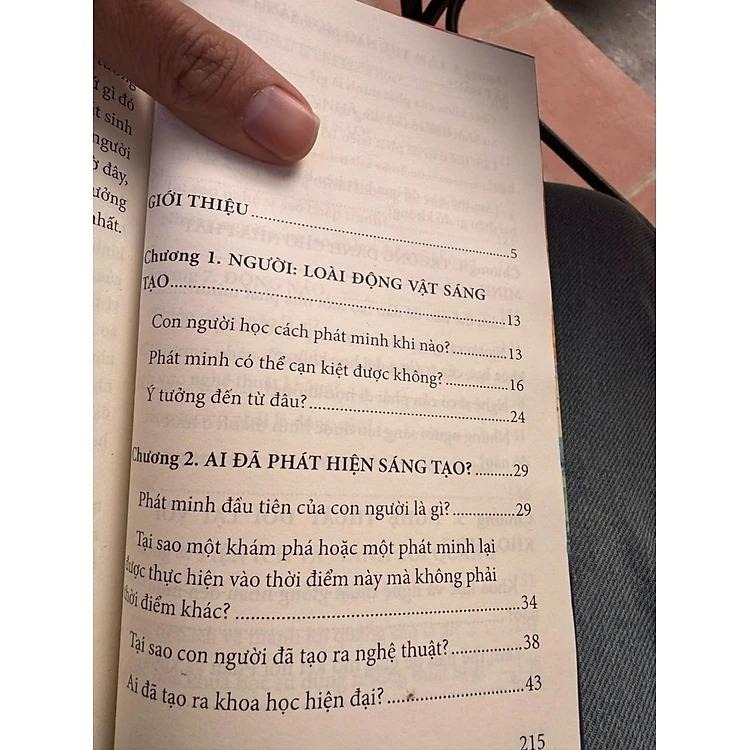 gì đó
sinh
người
đây,
ưởng
nhất.
GIỚI THIỆU...............5
Chương 1. NGƯỜI: LOÀI ĐỘNG VẬT SÁNG
TẠO...............13
Con người học cách phát minh khi nào?...............13
Phát minh có thể cạn kiệt được không?...............16
Ý tưởng đến từ đâu?...............24
Chương 2. AI ĐÃ PHÁT HIỆN SÁNG TẠO?...............29
Phát minh đầu tiên của con người là gì?...............29
Tại sao một khám phá hoặc một phát minh lại
được thực hiện vào thời điểm này mà không phải
thời điểm khác?...............34
Tại sao con người đã tạo ra nghệ thuật?...............38
Ai đã tạo ra khoa học hiện đại?...............43
215